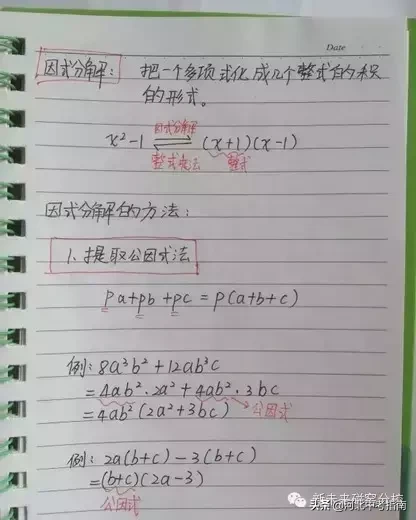 Date
因式分解: 把一个多项式化成几个整式的积
的形式。
因式分解
x²-1 ⇌ (x+1)(x-1)
整式乘法 整式
因式分解的方法:
1、提取公因式法
pa+pb+pc=p(a+b+c)
例: 8a³b²+12ab³c
=4ab²·2a²+4ab²·3bc
=4ab²(2a²+3bc) 公因式
例: 2a(b+c)-3(b+c)
=(b+c)(2a-3)
公因式